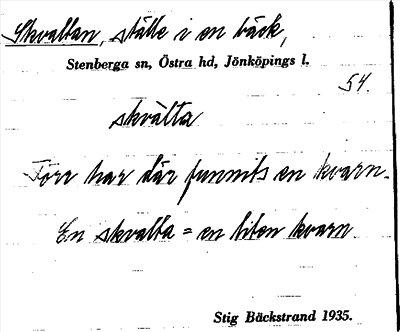 Skvaltan, ställe i en bäck,
Stenberga sn, Östra hd, Jönköpings l.
54.
skvàlta
Förr har där funnits en kvarn.
En skvalta = en liten kvarn.
Stig Bäckstrand 1935.